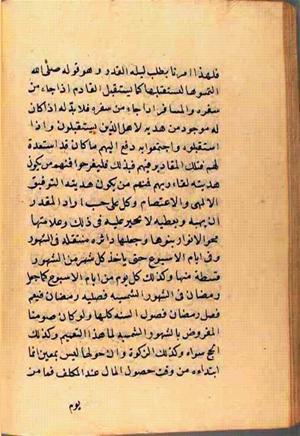 فلهذا امرنا بطلب ليلة القدر وهو قوله صلى الله
التمسوها لنستقبلها كما يستقبل القادم اذا جاء من
سفره والمسافر اذا جاء من سفره فلا بد له اذا كان
له موجود من هدية لاهله الذين يستقبلون واذا
استقبلوه واجتمعوا به دفع اليهم ما كان قد استعده
لهم فتلك المقادير فيهم فبذلك فليفرحوا فمنهم من يكون
هديته لقاء ربهم ومنهم من يكون هديته التوفيق
الالهي والاعتصام وكل على حسب ما اراد المقدر
ان يهبه ويعطيه لا تحجير عليه في ذلك وعلامتها
محو الانوار بنورها وجعلها دائرة منتقلة في الشهور
وفي ايام الاسبوع حتى ياخذ كل شهر من الشهور
قسطه منها وكذلك كل يوم من ايام الاسبوع كما جعل
رمضان في الشهور الشمسية فصلية رمضان فيعم
فصل رمضان فصول السنة كلها ولو كان صومنا
المفروض بالشهور الشمسية لما هذا التعميم وكذلك
الحج سواء وكذلك الزكوة وان حولها ليس بمعين فما
ابتداءه من وقت حصول المال عند المكلف فما من
يوم